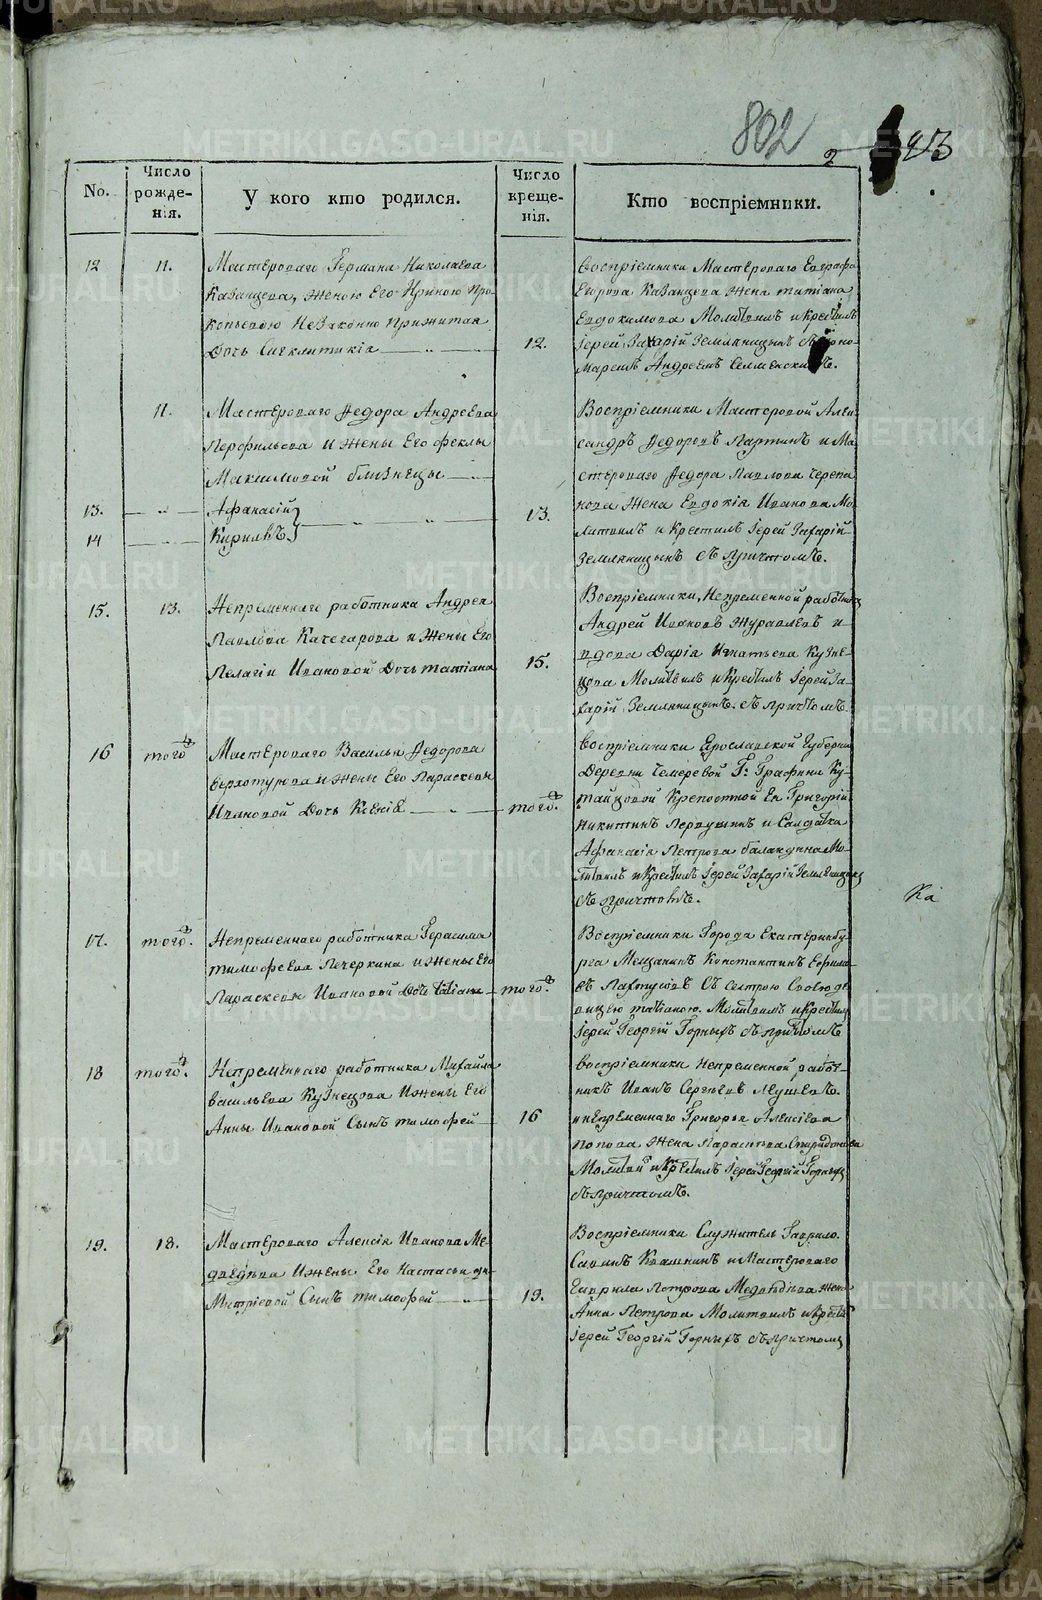 802
2
No.
Число рожде-нія.
У кого кто родился.
Число креще-нія.
Кто воспріемники.
12
11.
Мастероваго Германа Николаева
Казанцева, женою Его Ириною Про-
копьевою Незаконно прижитая
Дочь Сигклитикіа
12.
Воспріемники Мастероваго Евграфа
Егорова Казанцева жена татіана
Евдокимова Молитвилъ и крестилъ
Іерей Захарій Земляницынъ
Андреемъ
11.
Мастероваго Федора Андреева
Перфильева и жены Его феклы
Максимовой близнецы
13.
Афанасій
14
Кирилъ
13.
Воспріемники Мастеровой Алек-
сандръ Федоровъ Партинъ и Ма-
стероваго Федора Павлова Черепа
нова жена Евдокія Иванова Мо-
литвилъ и Крестилъ Іерей Захарій
Землянницынъ съ причтомъ.
15.
13.
Непременнаго работника Андрея
Павлова Качегарова и жены Его
Пелагіи Ивановой Дочь татіана
15.
Воспріемники, Непременной работникъ
Андрей Ивановъ Журавлевъ и
вдова Дарія Игнатьева Кузне-
цова Молитвилъ и крестилъ Іерей За-
харій Землянницынъ. съ причтомъ.
16
того.
Мастероваго Василья Федорова
Верхотурова и жены Его Параскевы
Ивановой Дочь Ксенія
того.
Воспріемники Ярославской Губерніи
Деревни Чемеревой Г: Графини Ку-
тайцовой Крепостной Ея Григорій
Никитинъ Первушинъ и Салдатка
Афанасія Петрова баландина Мо-
литвилъ и крестилъ Іерей Захарій Землянницынъ
съ причтомъ.
Ка
17.
того.
Непременнаго работника Герасима
тимофеева Печеркина и жены Его
Параскевы Ивановой Дочь татіана
того.
Воспріемники Города Екатеринбу
рга Мещанинъ Константинъ Ефимо-
въ Пахтусовъ Съ сестрою Своею де
вицею татіаною. Молитвилъ и крестилъ
Іерей Георгій Горныхъ съ причтомъ
18
того.
Непременнаго работника Михайла
васильева Кузнецова и жены Его
Анны Ивановой Сынъ тимофей
16
Воспріемники Непременной работ-
никъ Иванъ Сергѣевъ
и непременнаго Григорья Алексѣева
попова жена Параскева Спиридонова
Молитвил и крестилъ Іерей Георгій Горныхъ
съ причтомъ.
19.
18.
Мастероваго Алексія Иванова Ме-
двѣдева и жены Его Настасьи Ди-
митріевой Сынъ тимофей
19.
Воспріемники Служитель Гаврило.
Савинъ Калининъ и Мастероваго
Гаврила Петрова Медвѣдева жена
Анна Петрова Молитвилъ и крестилъ
Іерей Георгій Горныхъ съ причтомъ
METRIKI.GASO-URAL.RU